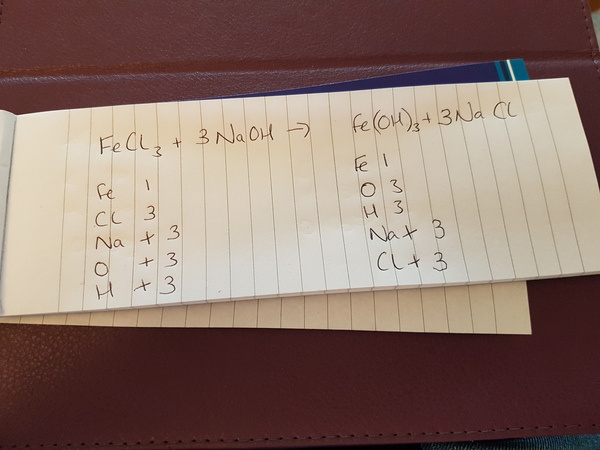 FeCl₃ + 3NaOH → Fe(OH)₃ + 3NaCl
Fe 1
Cl 3
Na + 3
O + 3
H + 3
Fe 1
O 3
H 3
Na + 3
Cl + 3